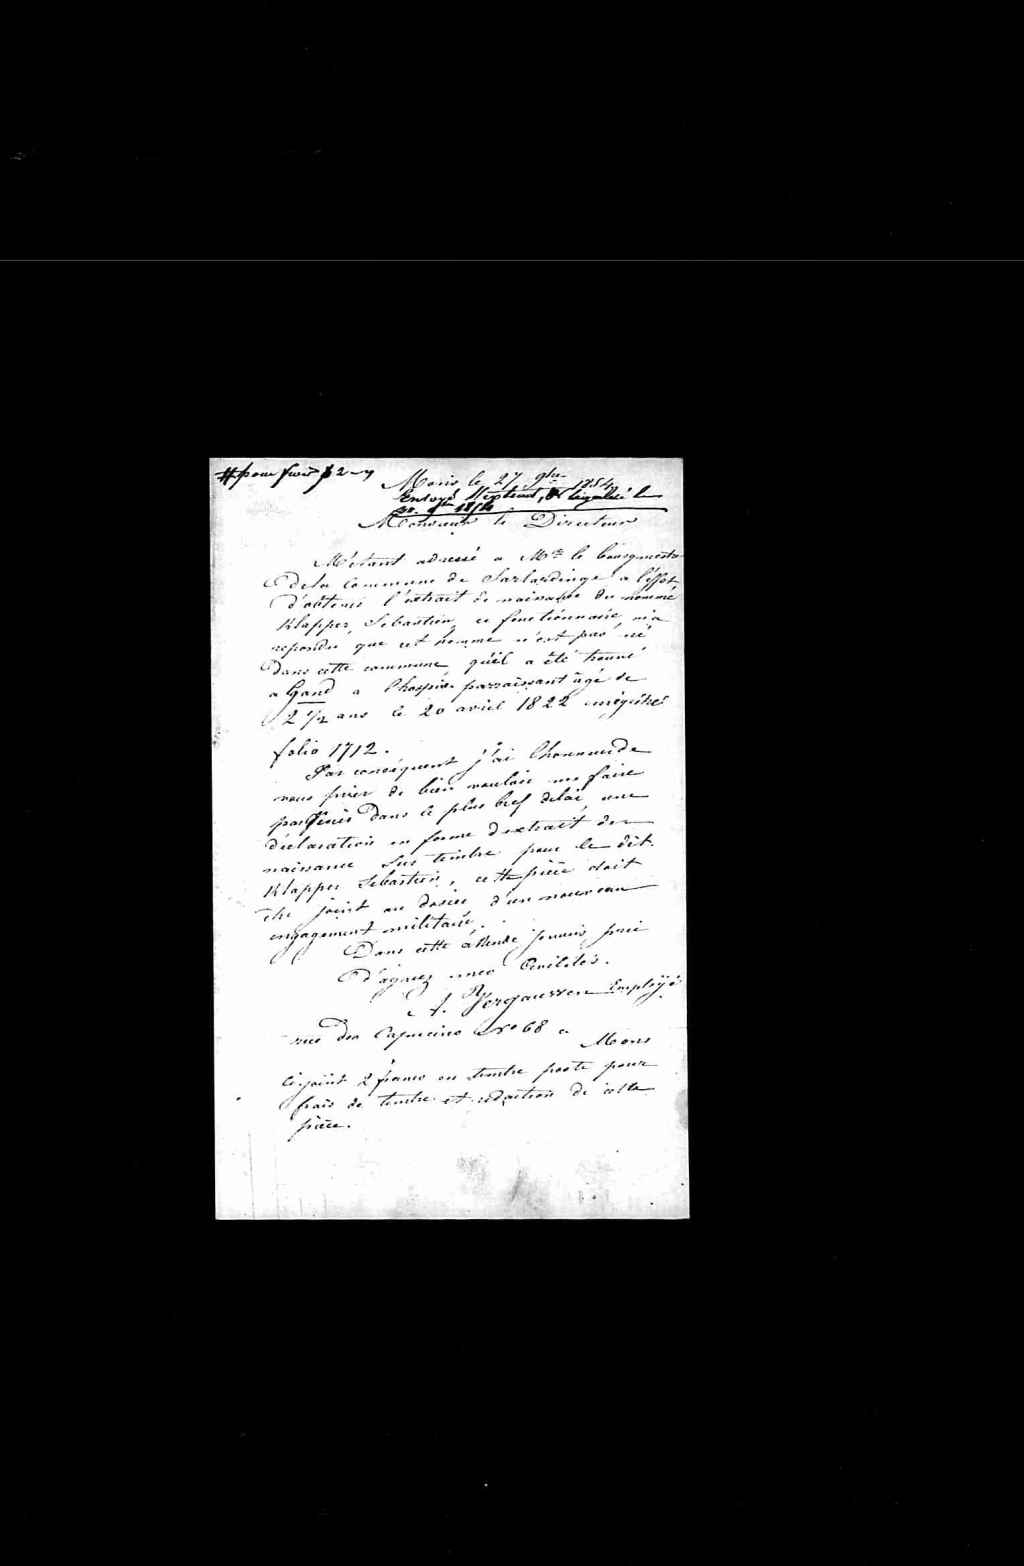 Mons le 27 9bre 1854
Envoyé & légalisé le
Monsieur le Directeur
M'étant adressé a Mr le bourgmestre
de la Commune de Sarlardinge a l'effet
d'obtenir l'extrait de naissance du nommé
Klapper, Sebastien, ce fonctionnaire, m'a
repondu que cet homme n'est pas né
Dans cette commune, qu'il a été trouvé
a Gand a l'hospice parraissant âgé de
2 1/2 ans le 20 avril 1822 enrégistré
folio 1712.
Par conséquent j'ai l'honneur de
vous prier de bien vouloir me faire
parvenir Dans le plus bref delai, une
déclaration en forme d'extrait de
naissance sur timbre pour le dit
Klapper Sebastien, cette pièce doit
être joint au dosier d'un nouveau
engagement militaire.
Dans cette attende je vous prie
D'agréez mes Civilités.
A. Yergaussen Employé
rue des Capucins No 68 a
Mons
Ci-joint 2 francs en timbre poste pour
frais de timbre et rédaction de cette
pièce.